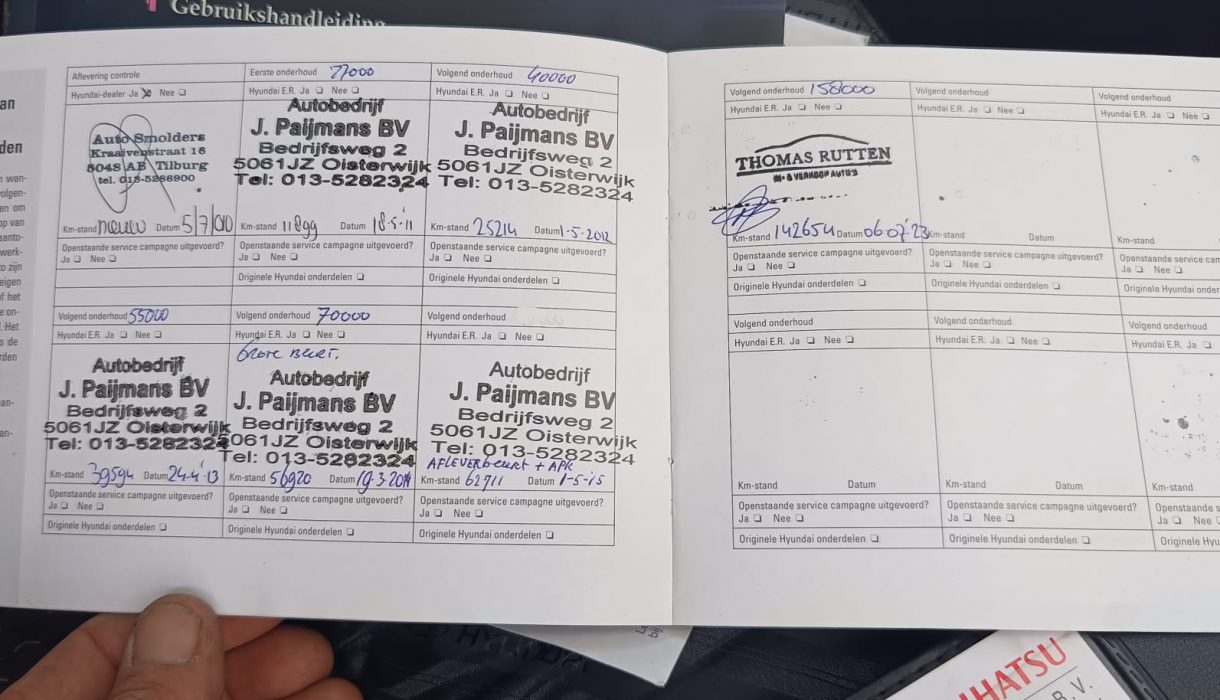 Gebruikshandleiding
an
den
Aflevering controle
Hyundai-dealer Ja ☒ Nee ❏
Auto Smolders
Kraaivenstraat 16
5048 AB Tilburg
tel. 013-5286900
Km-stand nieuw Datum 5/7/010
Openstaande service campagne uitgevoerd?
Ja ❏ Nee ❏
Eerste onderhoud 27000
Hyundai E.R. Ja ❏ Nee ❏
Autobedrijf
J. Paijmans BV
Bedrijfsweg 2
5061JZ Oisterwijk
Tel: 013-5282324
Km-stand 11899 Datum 18-5-'11
Openstaande service campagne uitgevoerd?
Ja ❏ Nee ❏
Originele Hyundai onderdelen ❏
Volgend onderhoud 40000
Hyundai E.R. Ja ❏ Nee ❏
Autobedrijf
J. Paijmans BV
Bedrijfsweg 2
5061JZ Oisterwijk
Tel: 013-5282324
Km-stand 25214 Datum 1-5-2012
Openstaande service campagne uitgevoerd?
Ja ❏ Nee ❏
Originele Hyundai onderdelen ❏
Volgend onderhoud 55000
Hyundai E.R. Ja ❏ Nee ❏
Autobedrijf
J. Paijmans BV
Bedrijfsweg 2
5061JZ Oisterwijk
Tel: 013-5282324
Km-stand 39594 Datum 24-4-'13
Openstaande service campagne uitgevoerd?
Ja ❏ Nee ❏
Originele Hyundai onderdelen ❏
Volgend onderhoud 70000
Hyundai E.R. Ja ❏ Nee ❏
Grote Beurt.
Autobedrijf
J. Paijmans BV
Bedrijfsweg 2
5061JZ Oisterwijk
Tel: 013-5282324
Km-stand 56920 Datum 19-3-2014
Openstaande service campagne uitgevoerd?
Ja ❏ Nee ❏
Originele Hyundai onderdelen ❏
Volgend onderhoud
Hyundai E.R. Ja ❏ Nee ❏
Autobedrijf
J. Paijmans BV
Bedrijfsweg 2
5061JZ Oisterwijk
Tel: 013-5282324
AFLEVERbeurt + APK
Km-stand 62711 Datum 1-5-15
Openstaande service campagne uitgevoerd?
Ja ❏ Nee ❏
Originele Hyundai onderdelen ❏
Volgend onderhoud 158000
Hyundai E.R. Ja ❏ Nee ❏
THOMAS RUTTEN
IN- & VERKOOP AUTO'S
Km-stand 142654 Datum 06 07 '23
Openstaande service campagne uitgevoerd?
Ja ❏ Nee ❏
Originele Hyundai onderdelen ❏
Volgend onderhoud
Hyundai E.R. Ja ❏ Nee ❏
Km-stand Datum
Openstaande service campagne uitgevoerd?
Ja ❏ Nee ❏
Originele Hyundai onderdelen ❏
Volgend onderhoud
Hyundai E.R. Ja ❏ Nee ❏
Km-stand
Openstaande service cam
Ja ❏ Nee ❏
Originele Hyundai onder
Volgend onderhoud
Hyundai E.R. Ja ❏ Nee ❏
Km-stand Datum
Openstaande service campagne uitgevoerd?
Ja ❏ Nee ❏
Originele Hyundai onderdelen ❏
Volgend onderhoud
Hyundai E.R. Ja ❏ Nee ❏
Km-stand Datum
Openstaande service campagne uitgevoerd?
Ja ❏ Nee ❏
Originele Hyundai onderdelen ❏
Volgend onderhoud
Hyundai E.R. Ja ❏ Nee ❏
Km-stand
Openstaande s
Ja ❏ Nee
Originele Hyu
IHATSU
B.V.